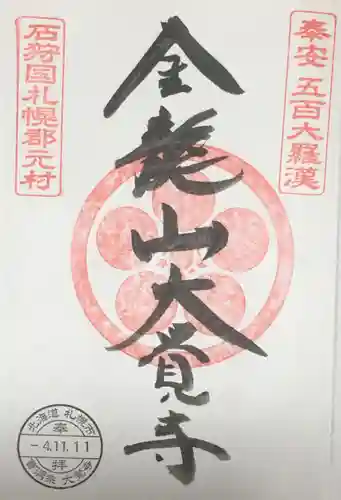 奉安 五百大羅漢
金龍山大覺寺
石狩国札幌郡元村
北海道 札幌市
奉
-4.11.11
拝
曹洞宗 大覚寺